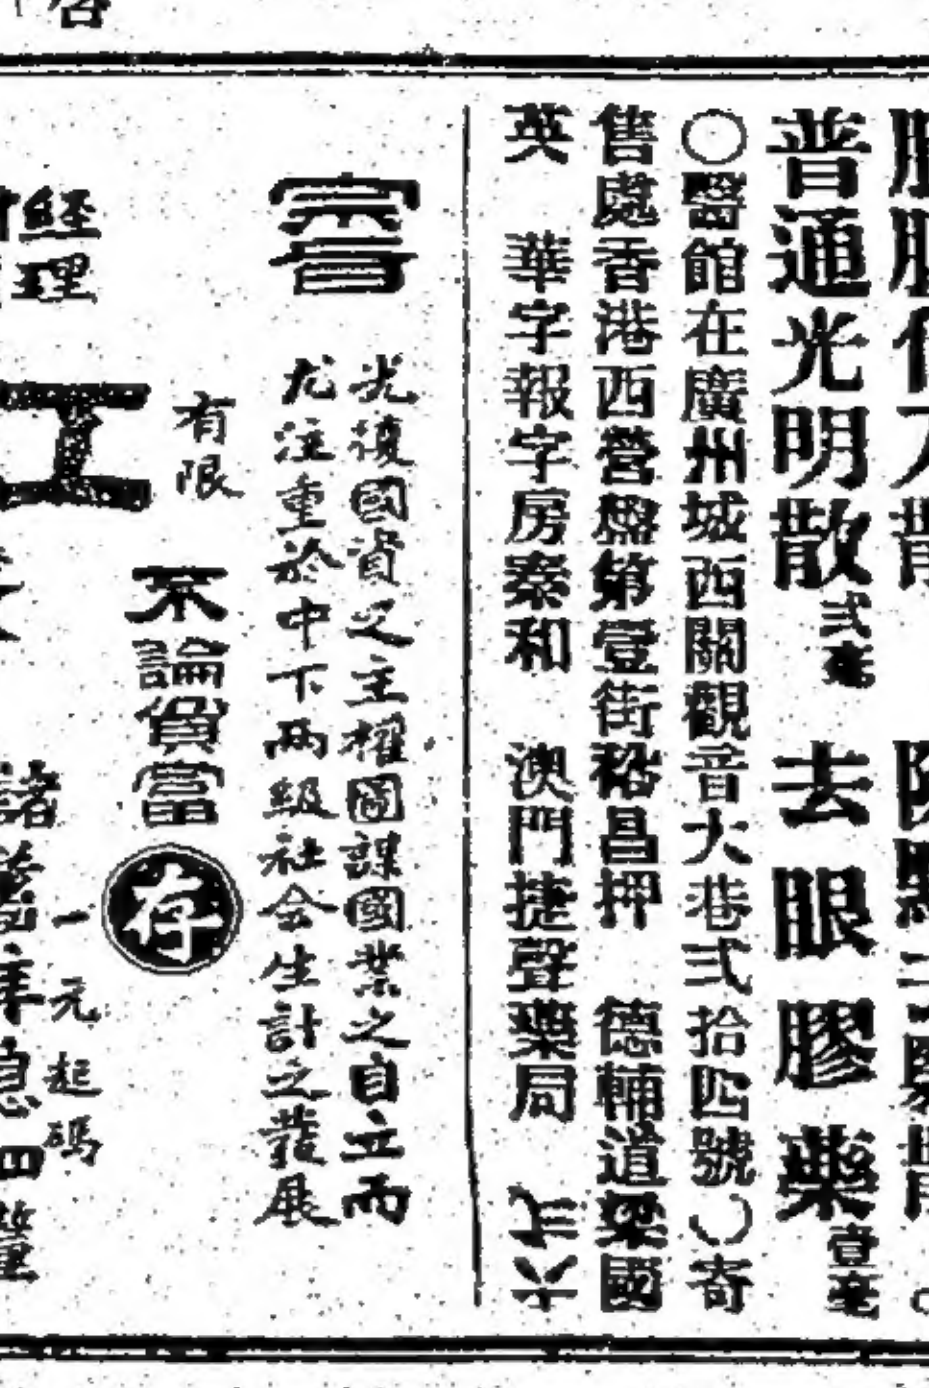 普通光明散 弍毫 去眼膠藥 壹毫
〇醫館在廣州城西關觀音大巷弍拾四號〇寄
售處香港西營盤第壹街裕昌押 德輔道梁國
英 華字報字房秦和 澳門捷聲藥局 弍六
宗旨
光復國資之主權圖謀國業之自立而
尤注重於中下兩級社会生計之發展
有限
不論貧富
存
一元起碼
経理
工